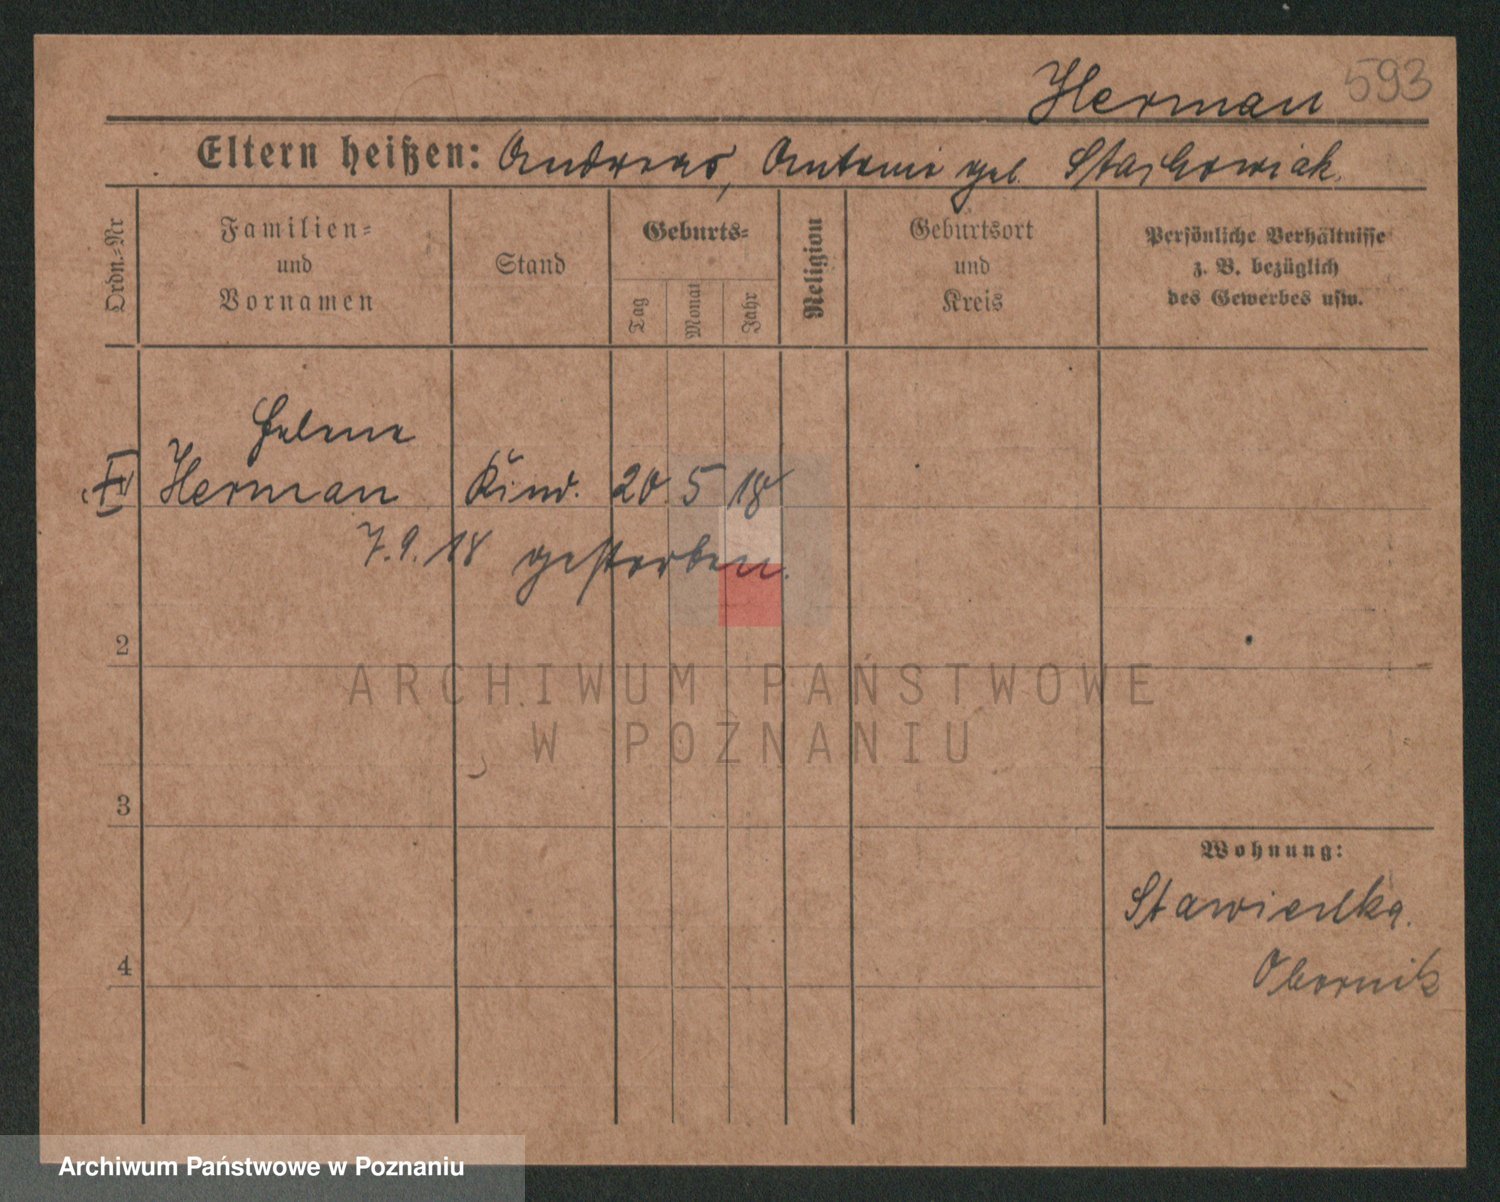 Herman 593
Eltern heißen: Andreas, Antonie geb. Stachowiak.
Ordn.-Nr
Familien-
und
Vornamen
Stand
Geburts-
Tag
Monat
Jahr
Religion
Geburtsort
und
Kreis
Persönliche Verhältnisse
z. B. bezüglich
des Gewerbes usw.
Helene
Herman Kind. 20. 5 18
7.9.18 gestorben.
2
ARCHIWUM PAŃSTWOWE
W POZNANIU
3
Wohnung:
4
Obornik
Archiwum Państwowe w Poznaniu